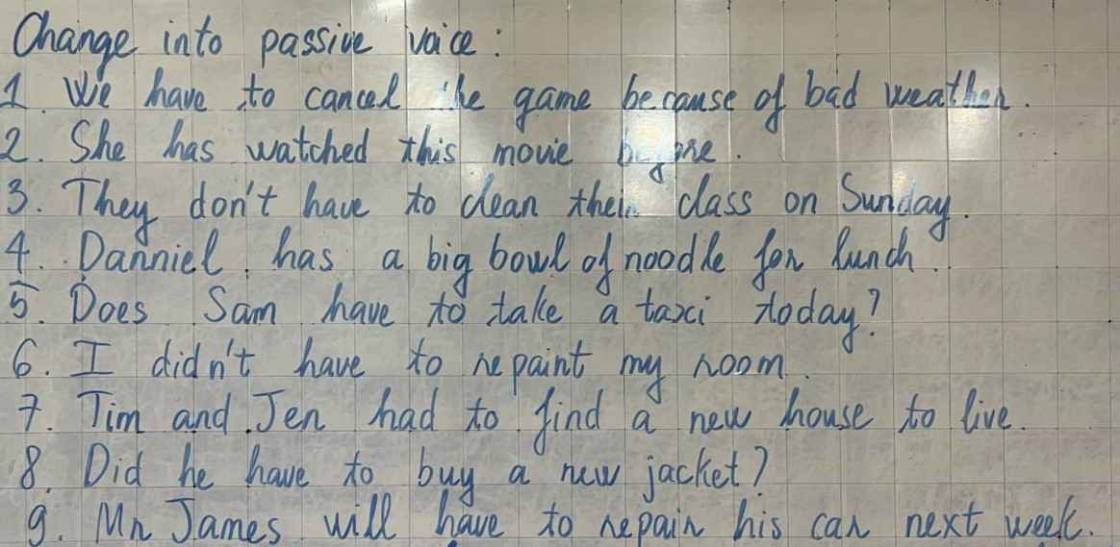 Change into passive voice :
1. We have to cancel the game because of bad weather.
2. She has watched this movie before.
3. They don't have to clean their class on Sunday.
4. Danniel has a big bowl of noodle for lunch.
5. Does Sam have to take a taxi today?
6. I didn't have to repaint my room.
7. Tim and Jen had to find a new house to live.
8. Did he have to buy a new jacket?
9. Mr James will have to repair his car next week.